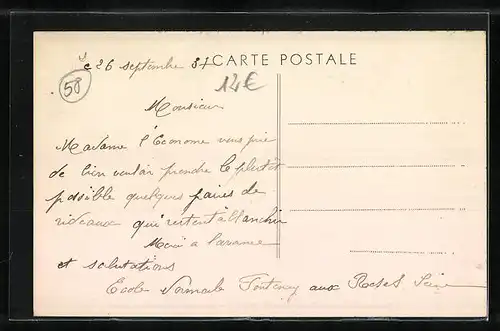 le 26 septembre 37
CARTE POSTALE
58
12€
Monsieur
Madame l'Econome vous prie
de bien vouloir prendre le plutôt
possible quelques paires de
rideaux qui restent à blanchir
Merci a l'avance
et salutations
Ecole Normale Fontenay aux Roses Seine